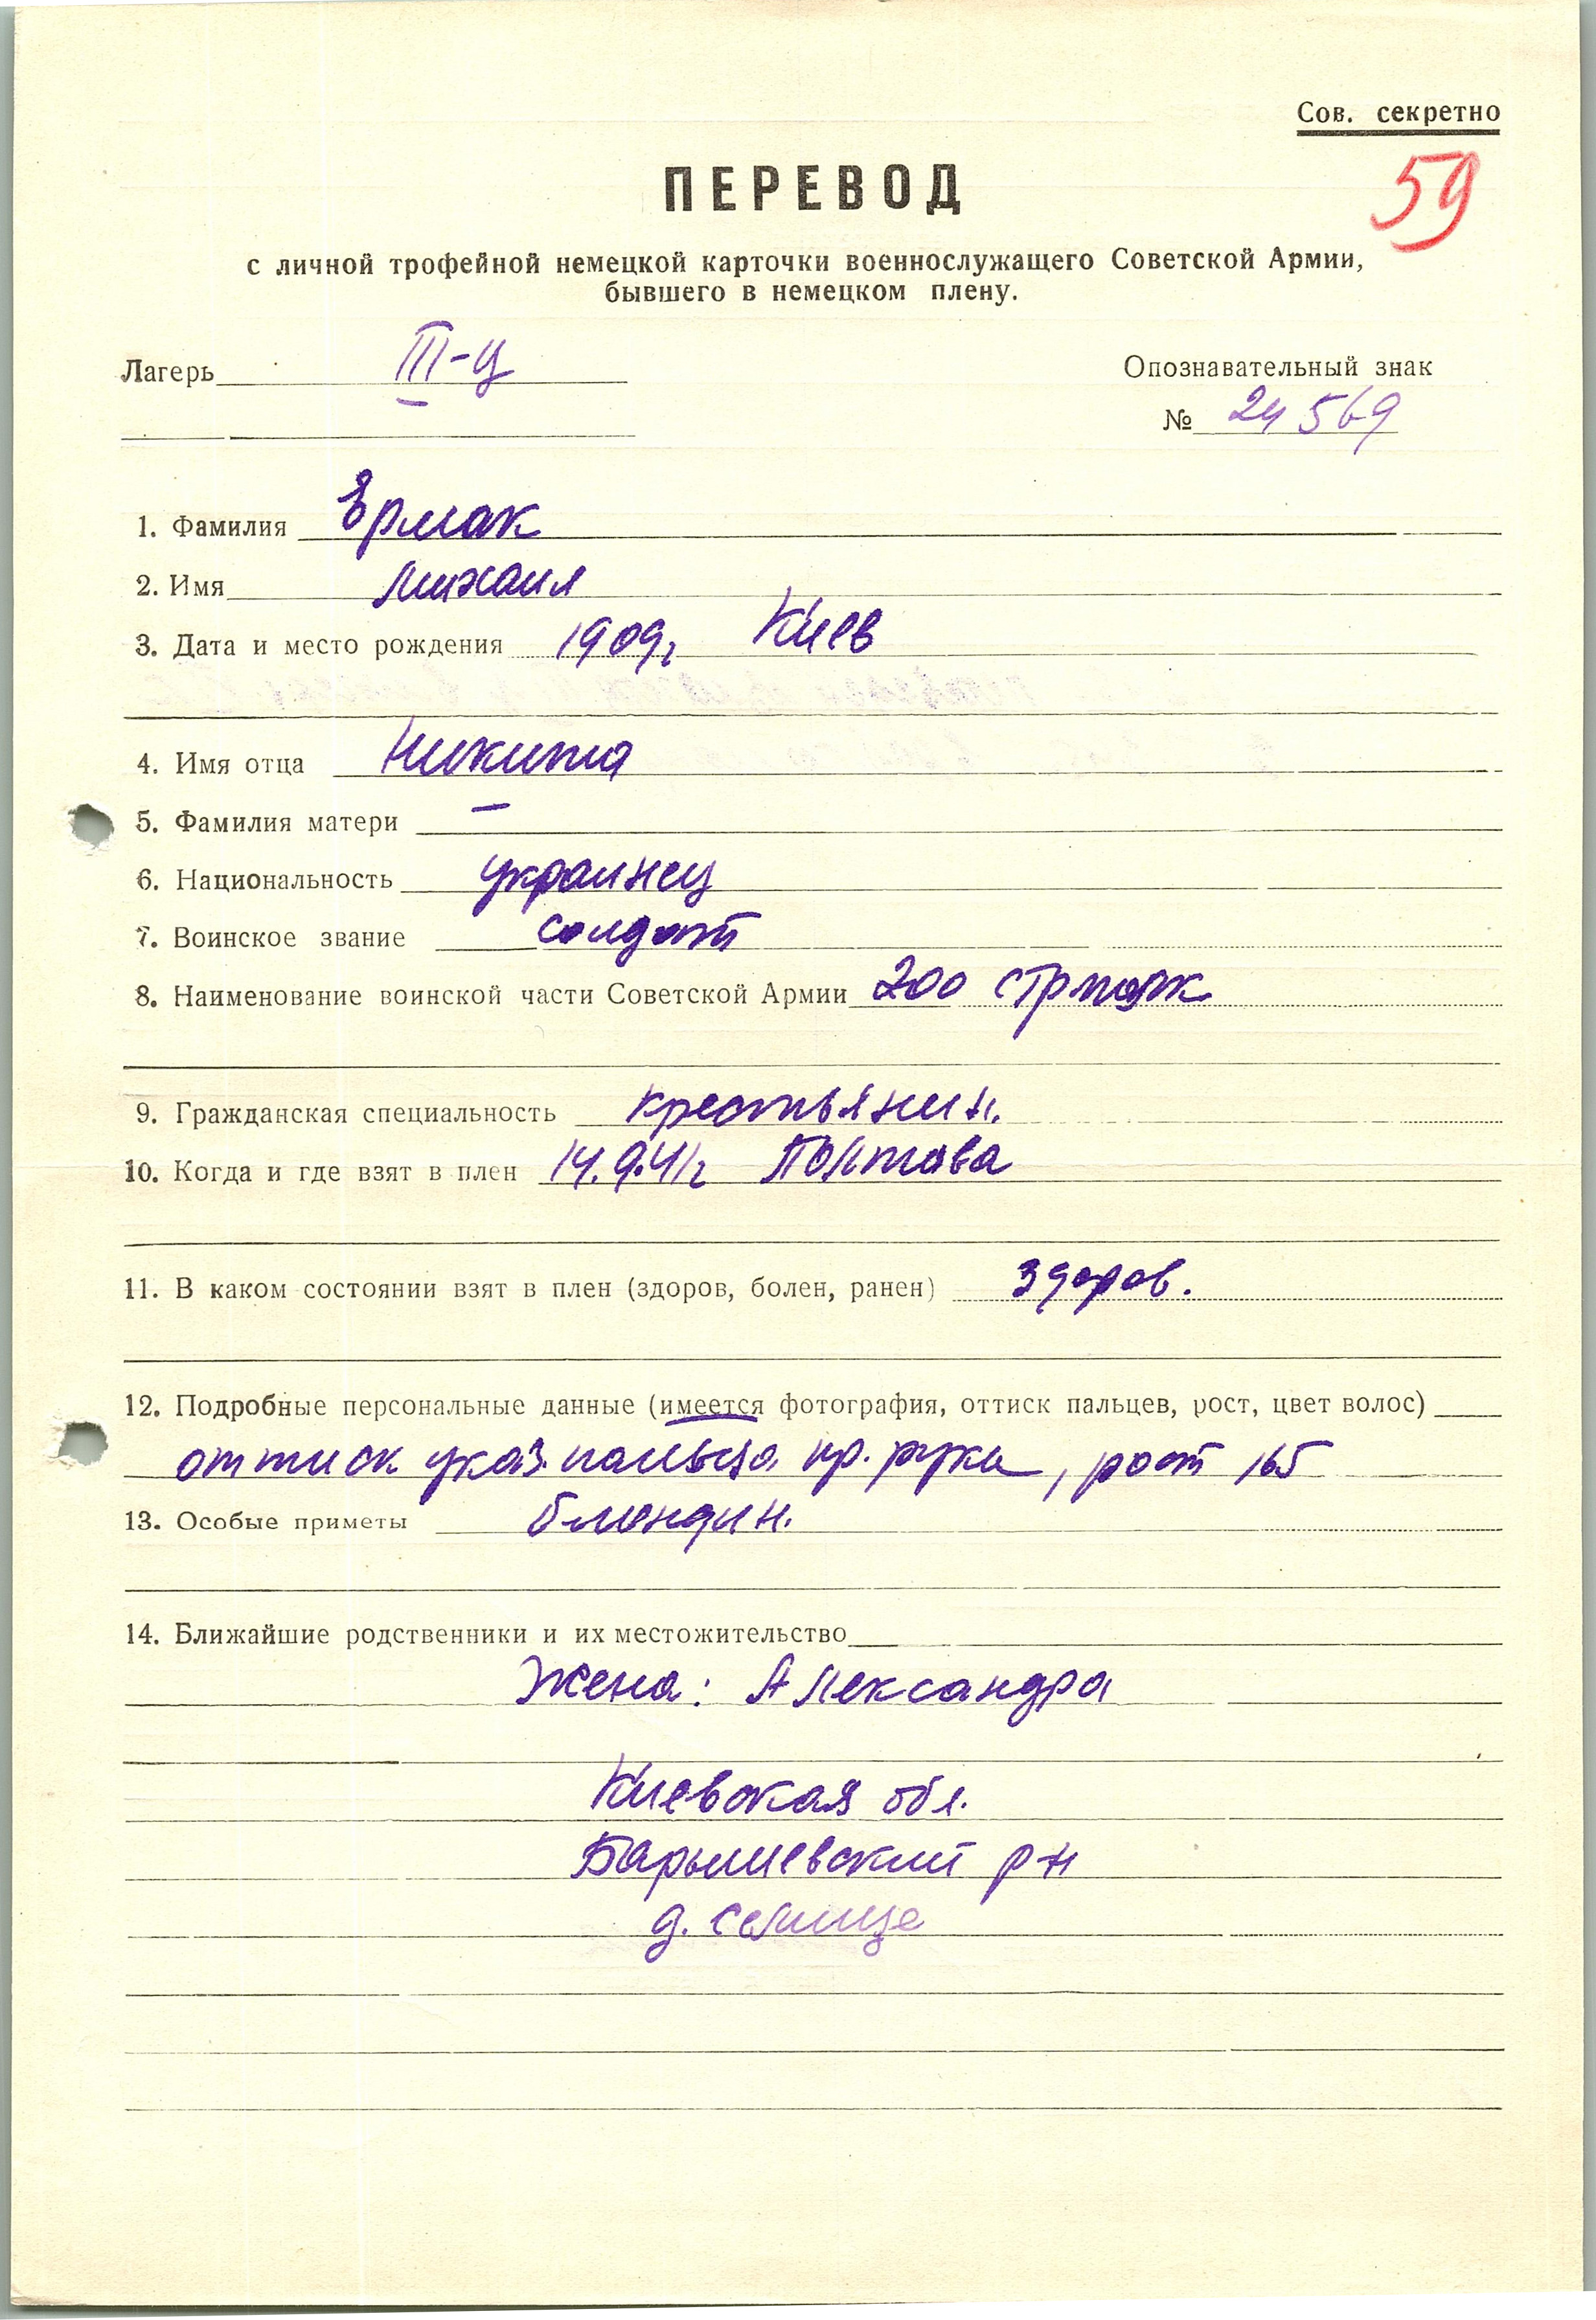 Сов. секретно
59
ПЕРЕВОД
с личной трофейной немецкой карточки военнослужащего Советской Армии,
бывшего в немецком плену.
Лагерь III-Ц
Опознавательный знак
№ 24569
1. Фамилия Ермак
2. Имя Михаил
3. Дата и место рождения 1909г Киев
4. Имя отца Никита
5. Фамилия матери —
6. Национальность украинец
7. Воинское звание солдат
8. Наименование воинской части Советской Армии 200 стр полк
9. Гражданская специальность крестьянин.
10. Когда и где взят в плен 14.9.41г Полтава
11. В каком состоянии взят в плен (здоров, болен, ранен) здоров.
12. Подробные персональные данные (имеется фотография, оттиск пальцев, рост, цвет волос)
оттиск указ. пальца пр. руки, рост 165
13. Особые приметы блондин.
14. Ближайшие родственники и их местожительство
Жена: Александра
Киевская обл.
Барышевский р-н
д. Селище